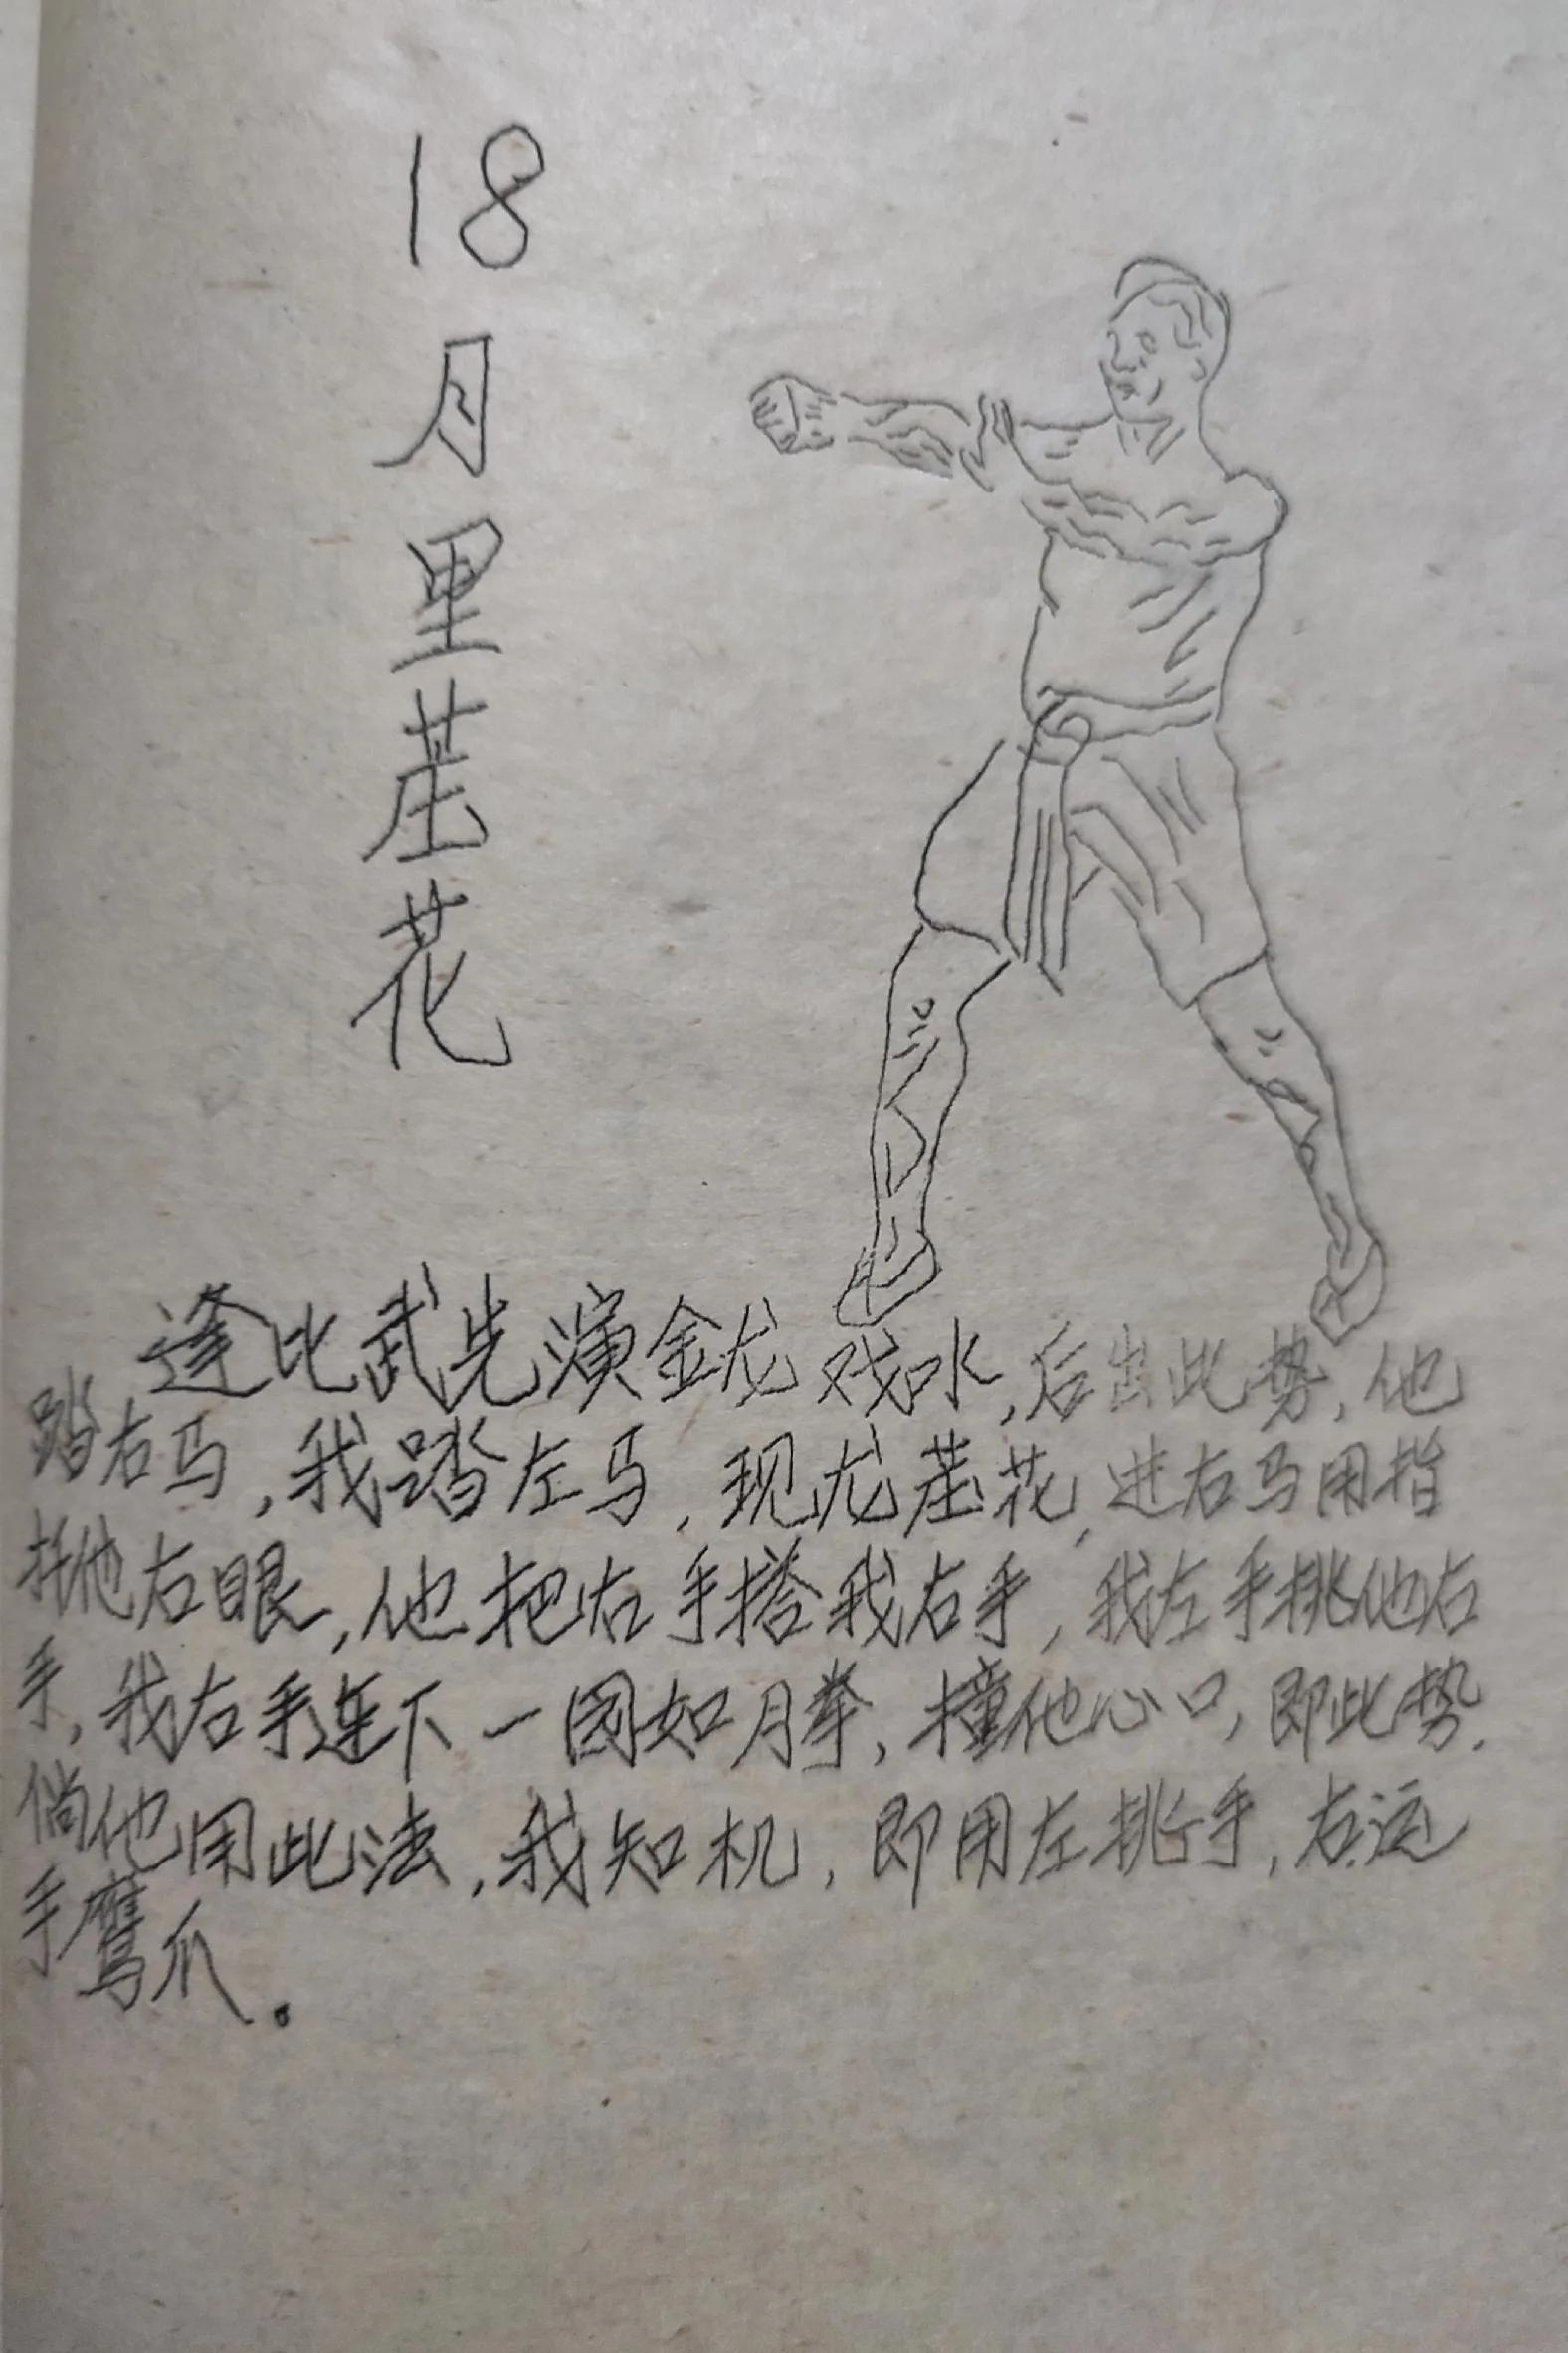 18
月里茊花
逢比武先演金龙戏水,后出此势,他
踏右马,我踏左马,现龙茊花,进右马用指
托他右眼,他把右手搭我右手,我左手挑他右
手,我右手连下一圆如月拳,撞他心口,即此势.
倘他用此法,我知机,即用左挑手,右运
手鹰爪。